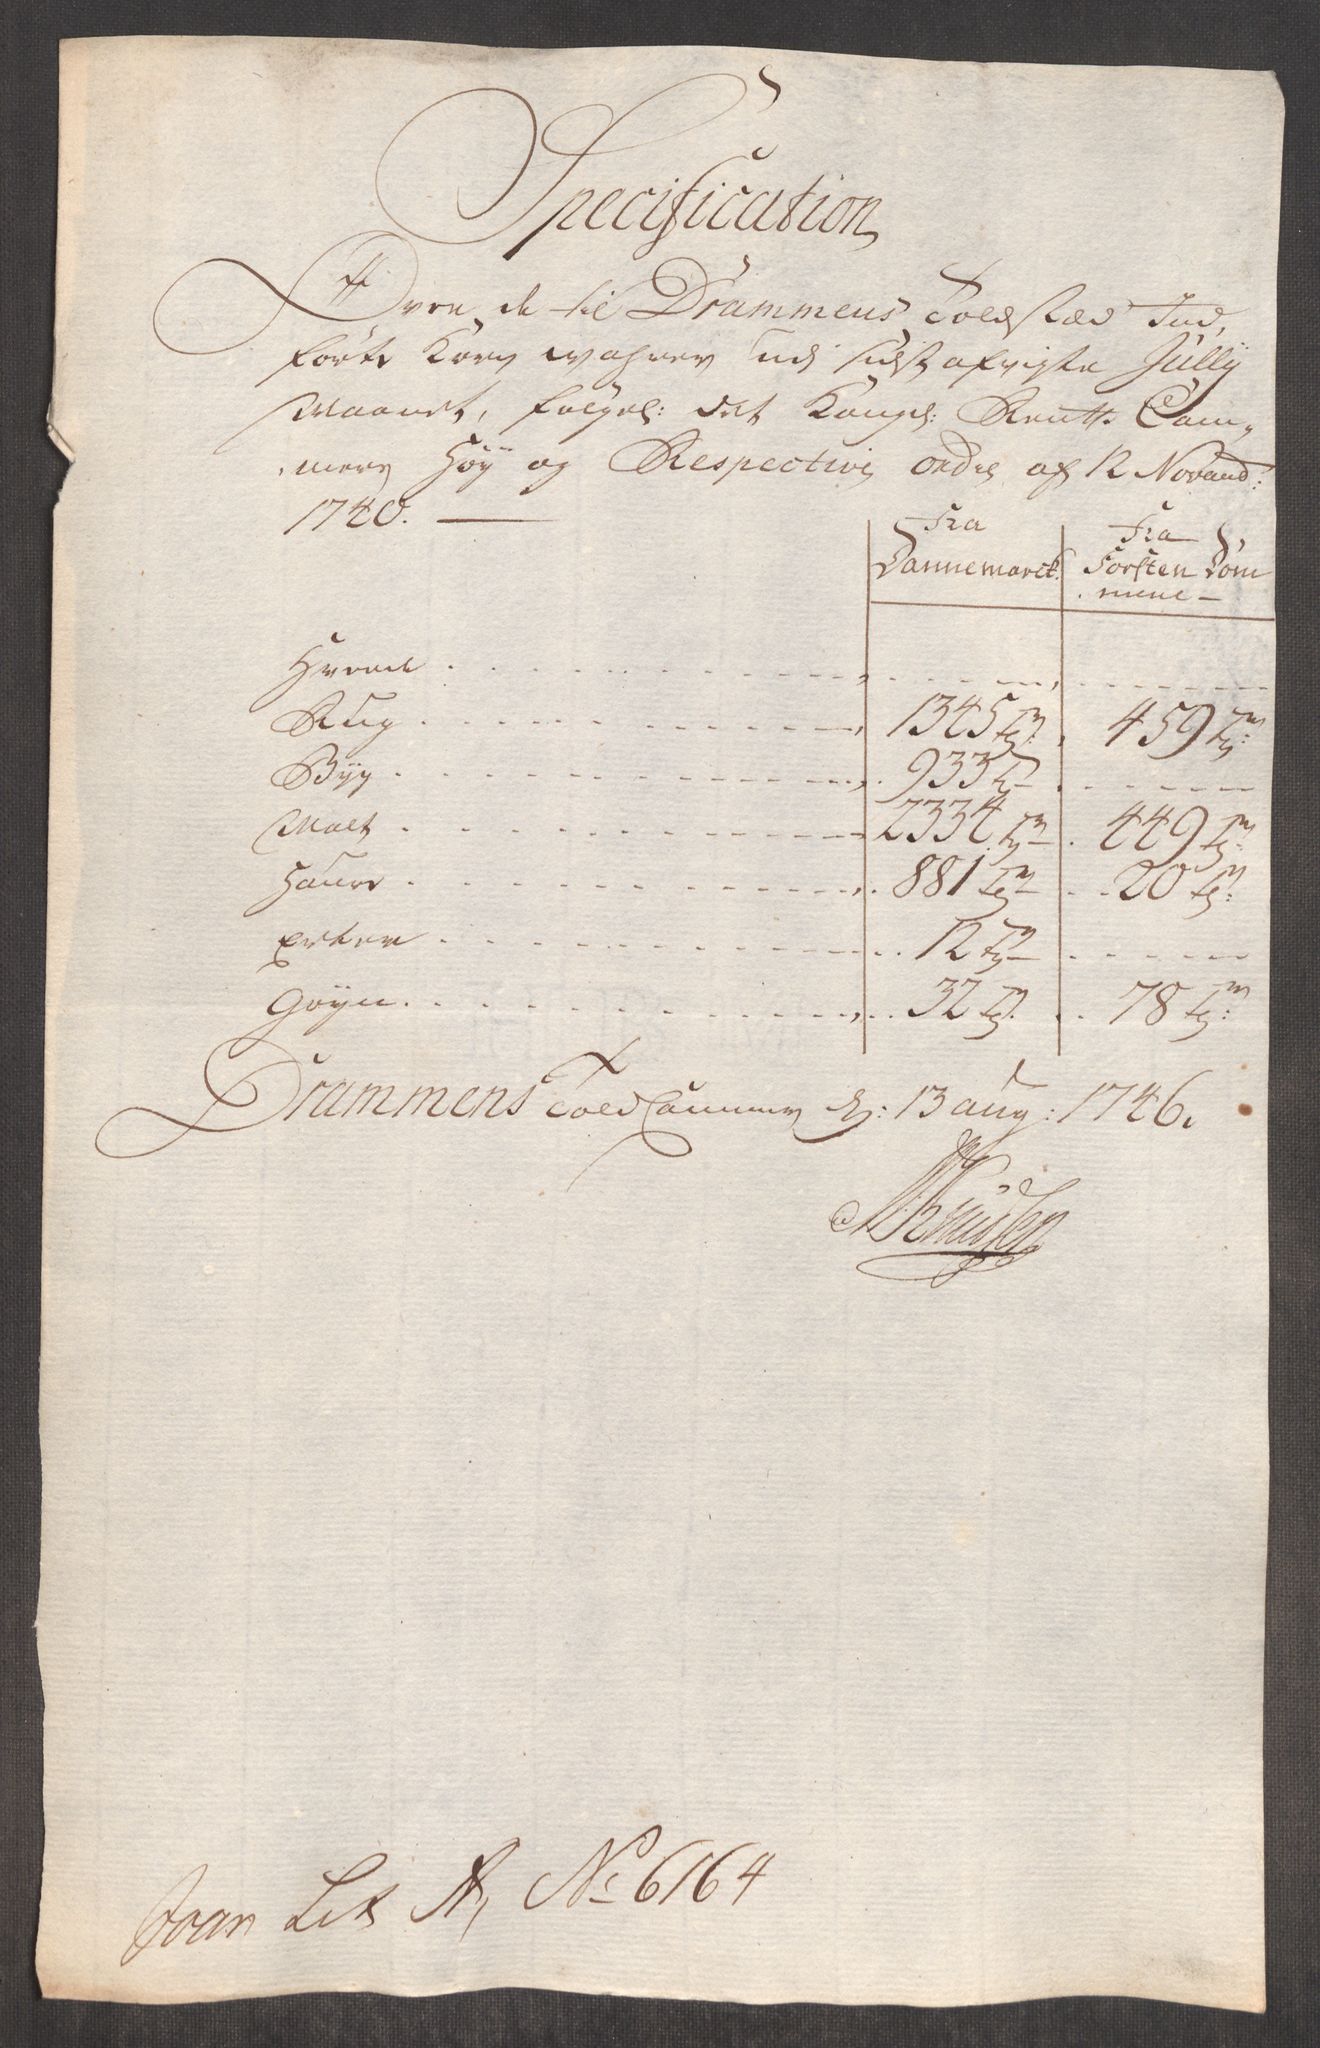 Specification
Over de til Drammens Toldsted Ind,
förte Korn wahrer udi sidst afvigte Jullÿ
Maanet, følgel: det Kongel: Rentte Cam,
mers Höÿ og Respective ordre af 12 Novemb:
1740.
Fra Fra
Dannemarck. Förstendöm
mene
Hveede
Rug 1345 Tr: 459 Tr:
Bÿg 933 Tr
Malt 2334 Tr 449 Tr:
Haure 881 Tr 20 Tr:
Erter 12 Tr
Grÿn 32 Tr. 78 Tr:
Drammens Told Cammer d: 13 aug: 1746.
Knudsen
Lit A, No 6164